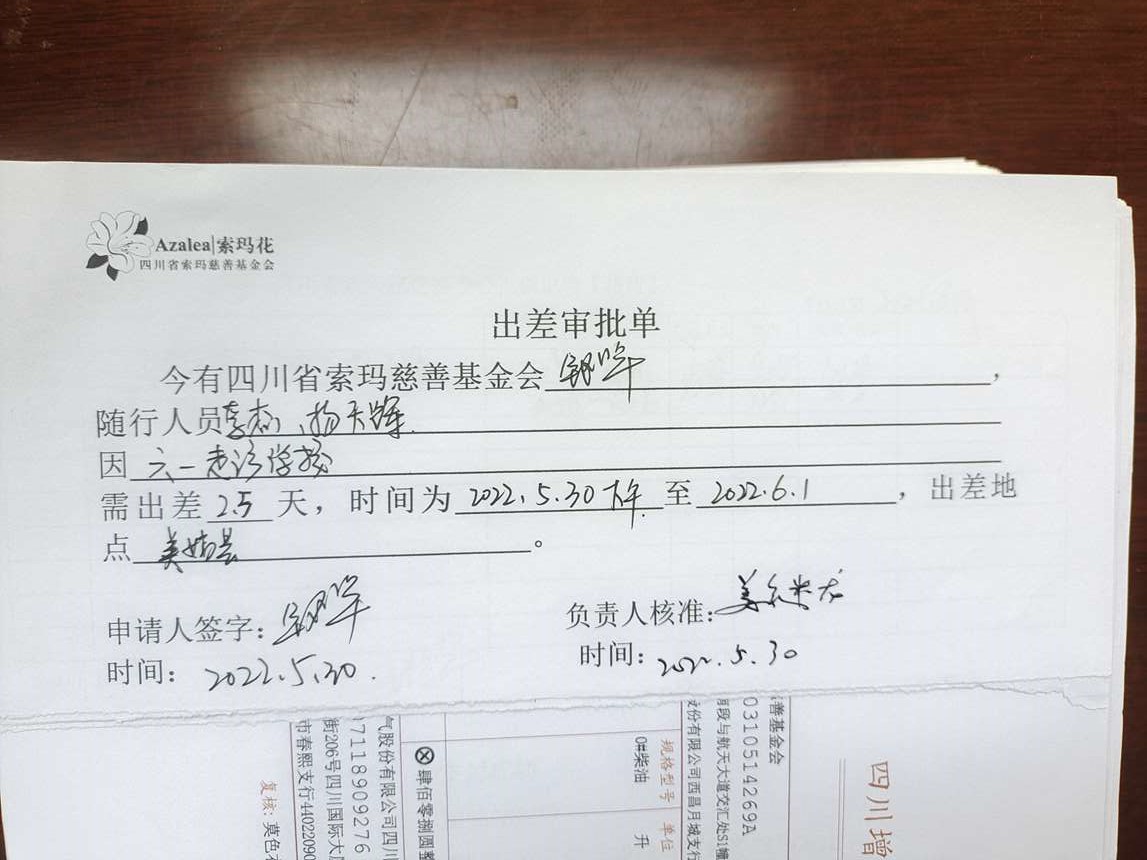 Azalea|索玛花
四川省索玛慈善基金会
出差审批单
今有四川省索玛慈善基金会，
随行人员李杰、杨天辉
因六一走访学校
需出差2.5天，时间为2022.5.30下午至2022.6.1，出差地
点美姑县。
申请人签字：
时间：2022.5.30.
负责人核准：
时间：2022.5.30
善基金会
0310514269A
有段与航天大道交汇处S1幢
份有限公司西昌月城支行
规格型号
单位
0#柴油
升
肆佰零捌圆整
气股份有限公司四川
7118909276
街206号四川国际大
市春熙支行44022090
复核：莫色
四川增